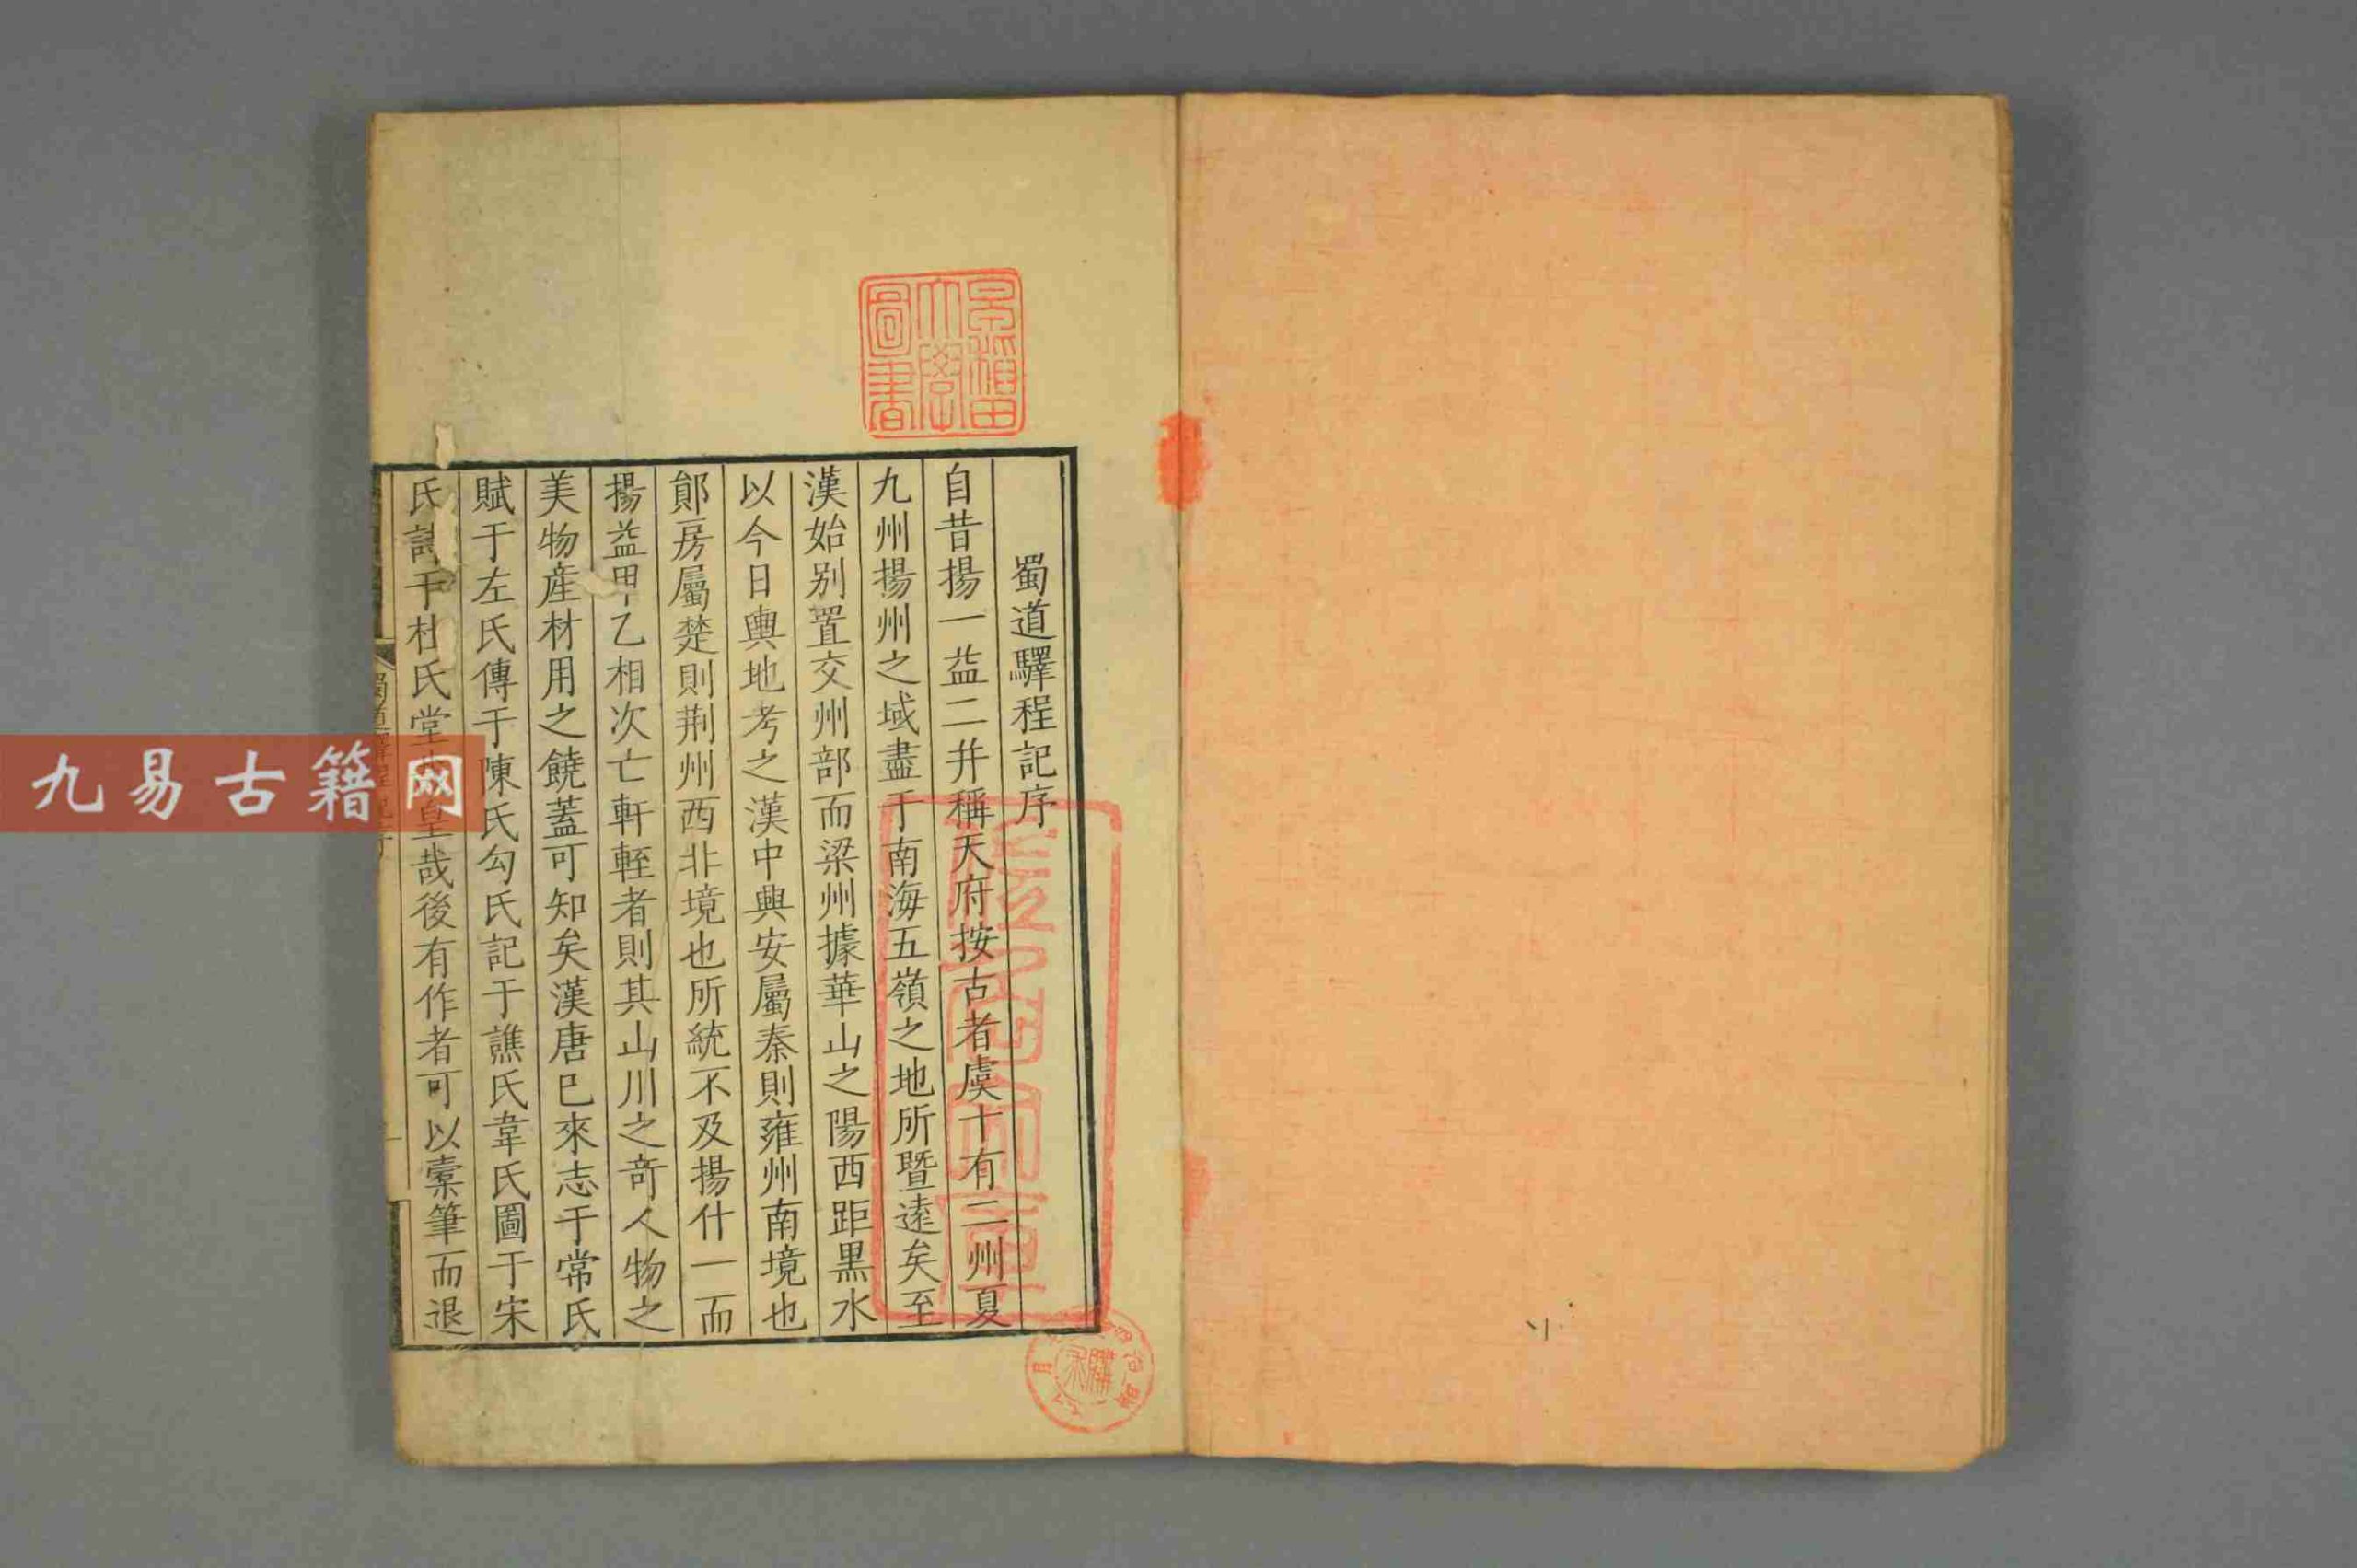 蜀道驛程記序
自昔揚一益二幷稱天府按古者虞十有二州夏
九州揚州之域盡于南海五嶺之地所暨遠矣至
漢始別置交州部而梁州據華山之陽西距黑水
以今日輿地考之漢中興安屬秦則雍州南境也
鄖房屬楚則荆州西非境也所統不及揚什一而
揚益甲乙相次亡軒輊者則其山川之奇人物之
美物産材用之饒蓋可知矣漢唐巳來志于常氏
賦于左氏傳于陳氏勾氏記于譙氏韋氏圖于宋
氏詩于杜氏堂皇哉後有作者可以槖筆而退
早稲田大學圖書
九易古籍网